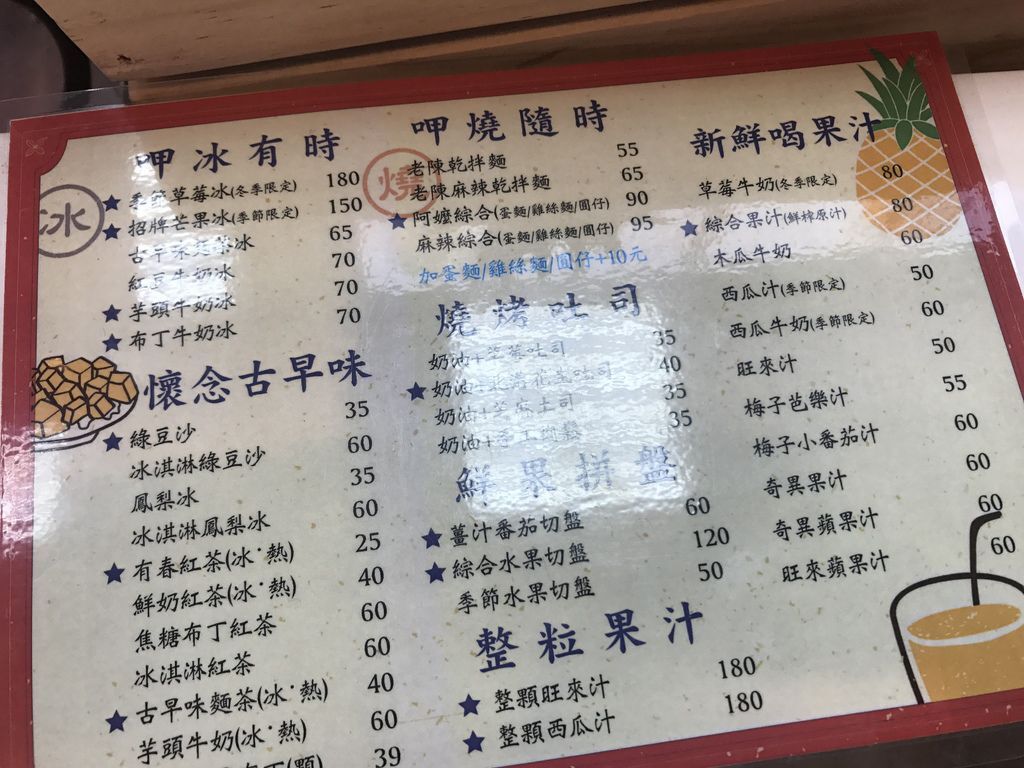 呷冰有時
冰
季節草莓冰(冬季限定) 180
招牌芒果冰(季節限定) 150
古早味麵茶冰 65
紅豆牛奶冰 70
芋頭牛奶冰 70
布丁牛奶冰 70
懷念古早味
綠豆沙 35
冰淇淋綠豆沙 60
鳳梨冰 35
冰淇淋鳳梨冰 60
有春紅茶(冰˙熱) 25
鮮奶紅茶(冰˙熱) 40
焦糖布丁紅茶 60
冰淇淋紅茶 60
古早味麵茶(冰˙熱) 40
芋頭牛奶(冰˙熱) 60
布丁(顆) 39
呷燒隨時
燒
老陳乾拌麵 55
老陳麻辣乾拌麵 65
阿嬤綜合(蛋麵/雞絲麵/圓仔) 90
麻辣綜合(蛋麵/雞絲麵/圓仔) 95
加蛋麵/雞絲麵/圓仔+10元
燒烤吐司
奶油+ 吐司 35
奶油+ 花生吐司 40
奶油+芝麻吐司 35
奶油+手工肉鬆 35
鮮果拼盤
薑汁番茄切盤 60
綜合水果切盤 120
季節水果切盤 50
整粒果汁
整顆旺來汁 180
整顆西瓜汁 180
新鮮喝果汁
草莓牛奶(冬季限定) 80
綜合果汁(鮮榨原汁) 80
木瓜牛奶 60
西瓜汁(季節限定) 50
西瓜牛奶(季節限定) 60
旺來汁 50
梅子芭樂汁 55
梅子小番茄汁 60
奇異果汁 60
奇異蘋果汁 60
旺來蘋果汁 60